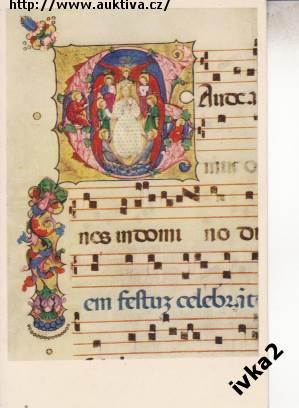 http://www.auktiva.cz/
GAudea
mus o
nes in domi no di
em festuz celebrāt
ivka2